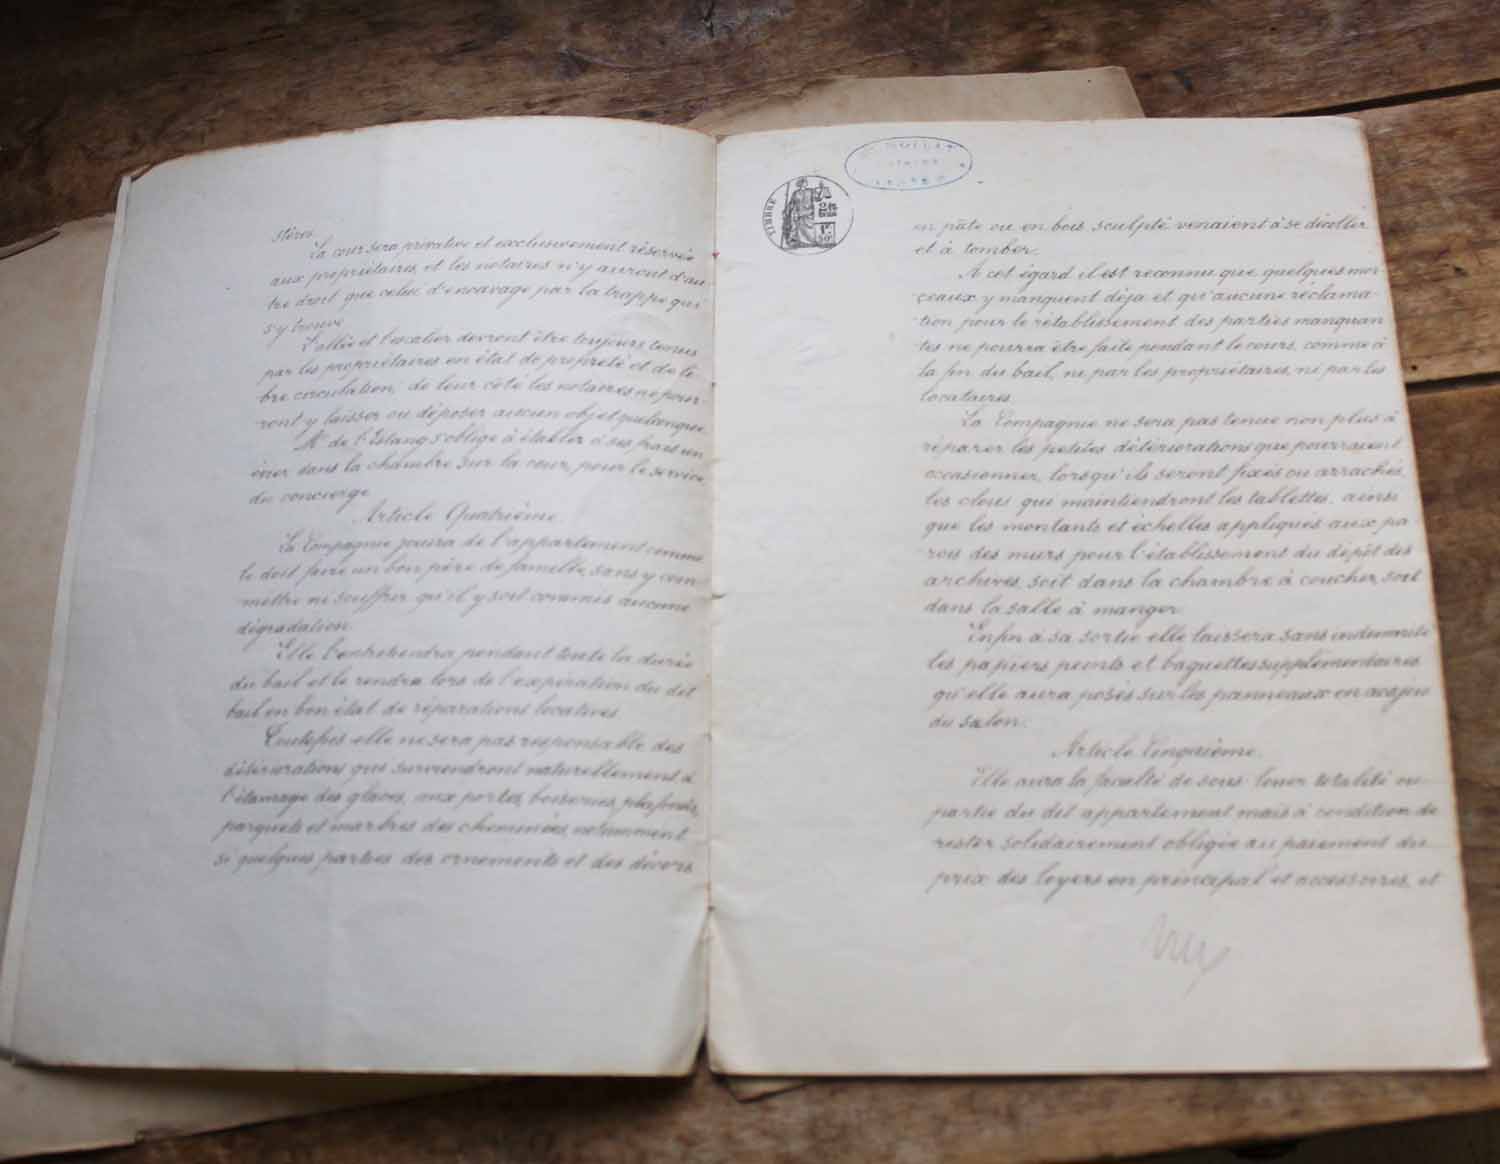 stères.
La cour sera privative et exclusivement réservée
aux propriétaires, et les notaires n'y auront d'au-
tre droit que celui d'encavage par la trappe qui
s'y trouve
L'allée et l'escalier devront être toujours tenus
par les propriétaires en état de propreté et de li-
bre circulation, de leur côté les notaires ne pour-
ront y laisser ou déposer aucun objet quelconque.
Mr de l'Estang s'oblige à établir à ses frais un
évier dans la chambre sur la cour, pour le service
du concierge
Article Quatrième.
La Compagnie jouira de l'appartement comme
le doit faire un bon père de famille, sans y com-
mettre ni souffrir qu'il y soit commis aucune
dégradation.
Elle l'entretiendra pendant toute la durée
du bail et le rendra lors de l'expiration du dit
bail en bon état de réparations locatives
Toutefois elle ne sera pas responsable des
détériorations qui surviendront naturellement à
l'étamage des glaces, aux portes, boiseries, plafonds,
parquets et marbres des cheminées, notamment
si quelques parties des ornements et des décors
TIMBRE
en pâte ou en bois sculpté venaient à se décoller
et à tomber.
A cet égard il est reconnu que quelques mor-
ceaux y manquent déja et qu'aucune réclama-
tion pour le rétablissement des parties manquan-
tes ne pourra être faite pendant le cours, comme à
la fin du bail, ni par les propriétaires, ni par les
locataires.
La Compagnie ne sera pas tenue non plus à
réparer les petites détériorations que pourraient
occasionner, lorsqu'ils seront fixés ou arrachés,
les clous qui maintiendront les tablettes, ainsi
que les montants et échelles appliqués aux pa-
rois des murs pour l'établissement du dépôt des
archives, soit dans la chambre à coucher, soit
dans la salle à manger.
Enfin à sa sortie elle laissera sans indemnité
les papiers peints et baguettes supplémentaires
qu'elle aura posés sur les panneaux en acajou
du salon.
Article Cinquième.
Elle aura la faculté de sous-louer totalité ou
partie du dit appartement mais à condition de
rester solidairement obligée au paiement du
prix des loyers en principal et accessoires, et